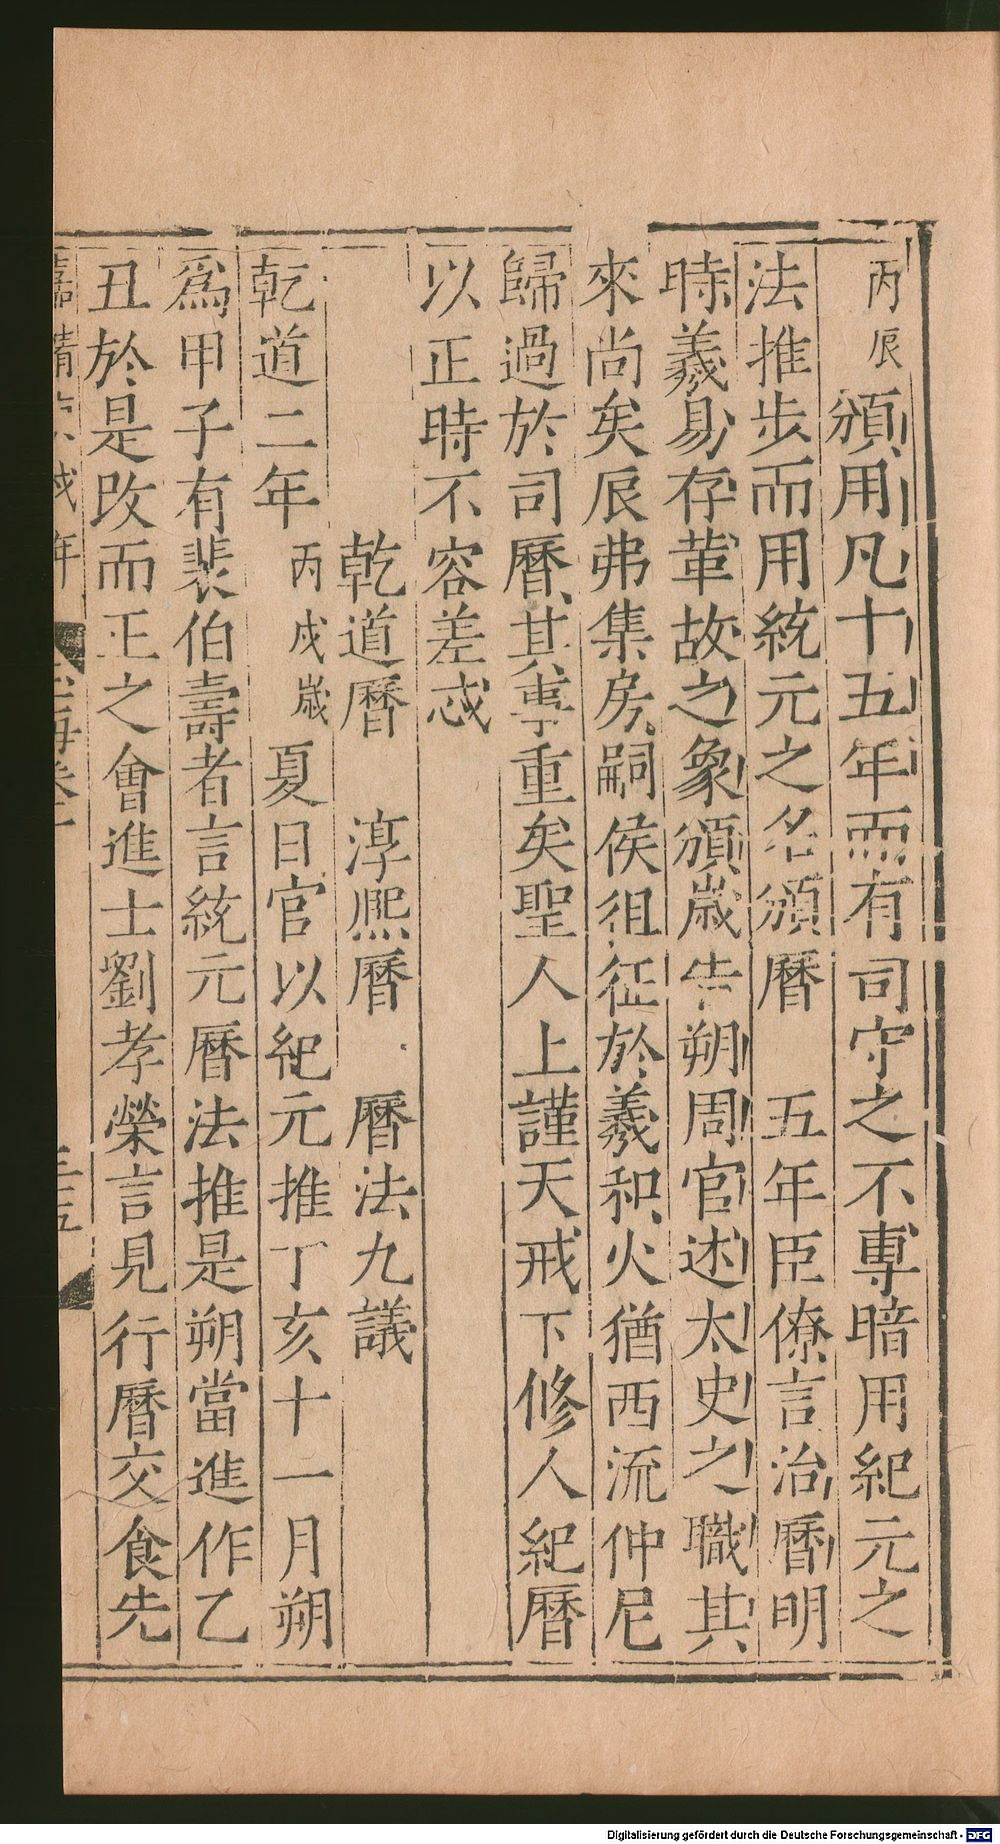 丙辰頒用凡十五年而有司守之不專暗用紀元之
法推步而用統元之名頒曆　五年臣僚言治曆明
時羲易存革故之象頒歲告朔周官述太史之職其
來尚矣辰弗集房嗣侯徂征於羲和火猶西流仲尼
歸過於司曆其專重矣聖人上謹天戒下修人紀曆
以正時不容差忒
乾道曆　淳熙曆　曆法九議
乾道二年丙戌歲夏日官以紀元推丁亥十一月朔
爲甲子有裴伯壽者言統元曆法推是朔當進作乙
丑於是改而正之會進士劉孝榮言見行曆交食先
嘉靖　戌年
Digitalisierung gefördert durch die Deutsche Forschungsgemeinschaft - DFG